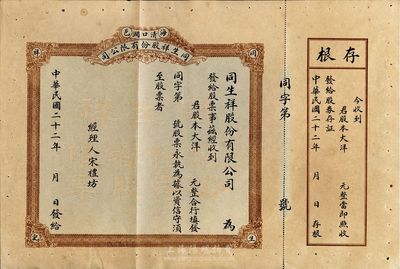 存根
今收到
君股本大洋 元整當即照收
發給股券存証
中華民國二十二年 月 日 存根
同字第 號
海清口圓邑
同生祥股份有限公司
同生祥股份有限公司 為
發給股票事茲經收到
君股本大洋 元整合行填發
同字第 號股票永執為據以資信守須
至股票者
經理人宋禮坊
中華民國二十二年 月 日發給
同
祥
生
記